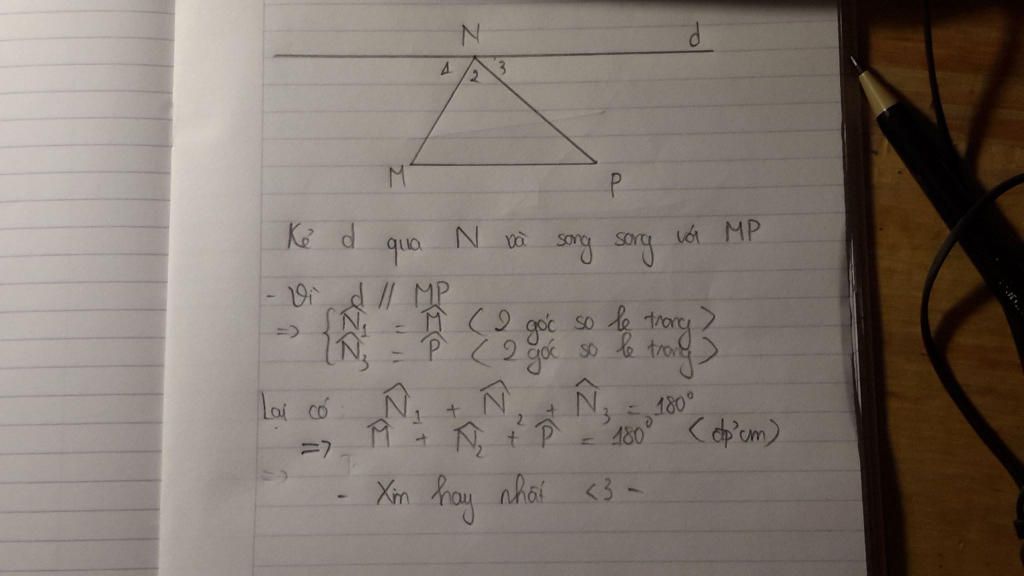 N d
1 2 3
M P
Kẻ d qua N và song song với MP
- Vì d // MP
=> { N̂1 = M̂ ( 2 góc so le trong )
{ N̂3 = P̂ ( 2 góc so le trong )
Lại có N̂1 + N̂2 + N̂3 = 180°
=> M̂ + N̂2 + P̂ = 180° (đpcm)
=>
- Xin hay nhất <3 -